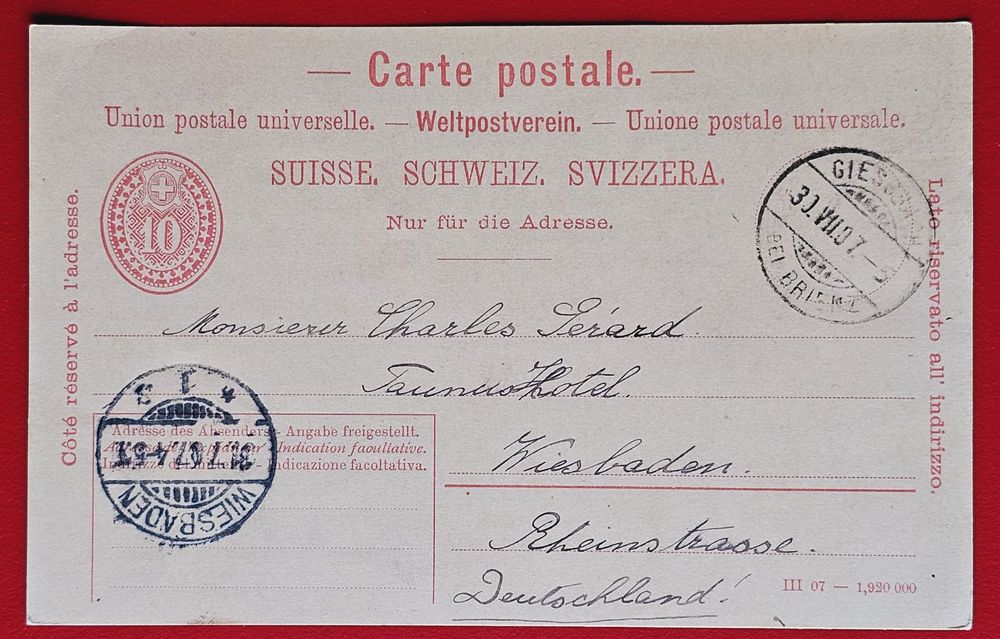 — Carte postale. —
Union postale universelle. — Weltpostverein. — Unione postale universale.
SUISSE. SCHWEIZ. SVIZZERA.
Nur für die Adresse.
10
Côté réservé à l'adresse.
Lato riservato all' indirizzo.
30.VII.07
BEI BRIENZ
Monsieur Charles Gérard.
Taunus Hotel.
Wiesbaden.
Rheinstrasse.
Deutschland!
Adresse des Absenders - Angabe freigestellt.
Indication facultative.
Indicazione facoltativa.
WIESBADEN
III 07 — 1,920 000